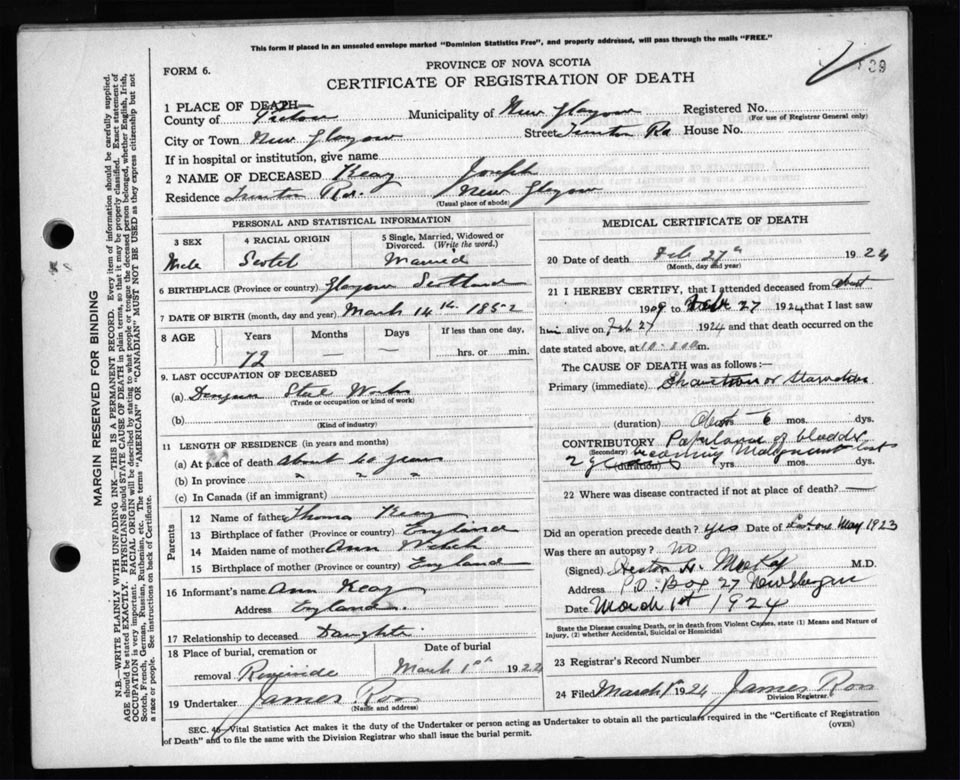 This form if placed in an unsealed envelope marked "Dominion Statistics Free", and properly addressed, will pass through the mails "FREE."
39
FORM 6.
PROVINCE OF NOVA SCOTIA
CERTIFICATE OF REGISTRATION OF DEATH
1 PLACE OF DEATH
County of Pictou Municipality of New Glasgow Registered No.
(For use of Registrar General only)
City or Town New Glasgow Street Trenton Rd. House No.
If in hospital or institution, give name
2 NAME OF DECEASED Keay Joseph
Residence Trenton Rd. New Glasgow
(Usual place of abode)
PERSONAL AND STATISTICAL INFORMATION
3 SEX
Male
4 RACIAL ORIGIN
Scotch
5 Single, Married, Widowed or
Divorced. (Write the word.)
Married
6 BIRTHPLACE (Province or country) Glasgow Scotland
7 DATE OF BIRTH (month, day and year) March 14th 1852
8 AGE
Years
72
Months
—
Days
If less than one day,
hrs. or min.
9. LAST OCCUPATION OF DECEASED
(a) Steel Works
(Trade or occupation or kind of work)
(b)
(Kind of industry)
11 LENGTH OF RESIDENCE (in years and months)
(a) At place of death about 40 years
(b) In province " " "
(c) In Canada (if an immigrant)
Parents
12 Name of father Thomas Keay
13 Birthplace of father (Province or country) England
14 Maiden name of mother Ann Welch
15 Birthplace of mother (Province or country) England
16 Informant's name Ann Keay
Address England.
17 Relationship to deceased Daughter
18 Place of burial, cremation or
removal Riverside
Date of burial
March 1st 1924
19 Undertaker James Ross
(Name and address)
MEDICAL CERTIFICATE OF DEATH
20 Date of death Feb 27th 1924
(Month, day and year)
21 I HEREBY CERTIFY, that I attended deceased from about
1909 to Feb 27 1924 that I last saw
him alive on Feb 27 1924 and that death occurred on the
date stated above, at m.
The CAUSE OF DEATH was as follows:—
Primary (immediate) Exhaustion or Starvation
(duration) About 6 mos. dys.
CONTRIBUTORY Papilloma of bladder
(Secondary) becoming Malignant last
2 years (duration) yrs. mos. dys.
22 Where was disease contracted if not at place of death? —
Did an operation precede death? yes Date of May 1923
Was there an autopsy? No
(Signed) Hector H. MacKay M.D.
Address P.O. Box 27 New Glasgow
Date March 1st 1924
State the Disease causing Death, or in death from Violent Causes, state (1) Means and Nature of
Injury, (2) whether Accidental, Suicidal or Homicidal
23 Registrar's Record Number
24 Filed March 1st 1924 James Ross
Division Registrar.
SEC. 45—Vital Statistics Act makes it the duty of the Undertaker or person acting as Undertaker to obtain all the particulars required in the "Certificate of Registration
of Death" and to file the same with the Division Registrar who shall issue the burial permit.
(OVER)
MARGIN RESERVED FOR BINDING
N.B.—WRITE PLAINLY WITH UNFADING INK—THIS IS A PERMANENT RECORD. Every item of information should be carefully supplied.
AGE should be stated EXACTLY. PHYSICIANS should STATE CAUSE OF DEATH in plain terms, so that it may be properly classified. Exact statement of
OCCUPATION is very important. RACIAL ORIGIN will be described by stating to what people or tongue the deceased person belonged, whether English, Irish,
Scotch, French, German, Russian, Ruthenian, etc. The terms "AMERICAN" OR "CANADIAN" MUST NOT BE USED as they express citizenship but not
a race or people. See instructions on back of Certificate.